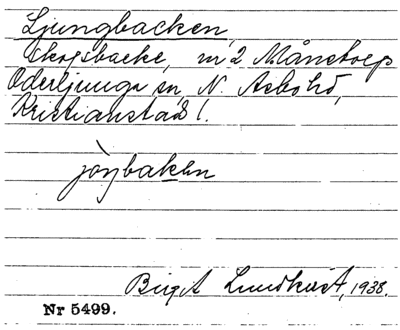 Ljungbacken,
Skogsbacke, nr 2 Månstorp
Oderljunga sn, N. Åsbo hd,
Kristianstads l.
jòŋbakən
Birgit Lundkvist, 1938.
Nr 5499.